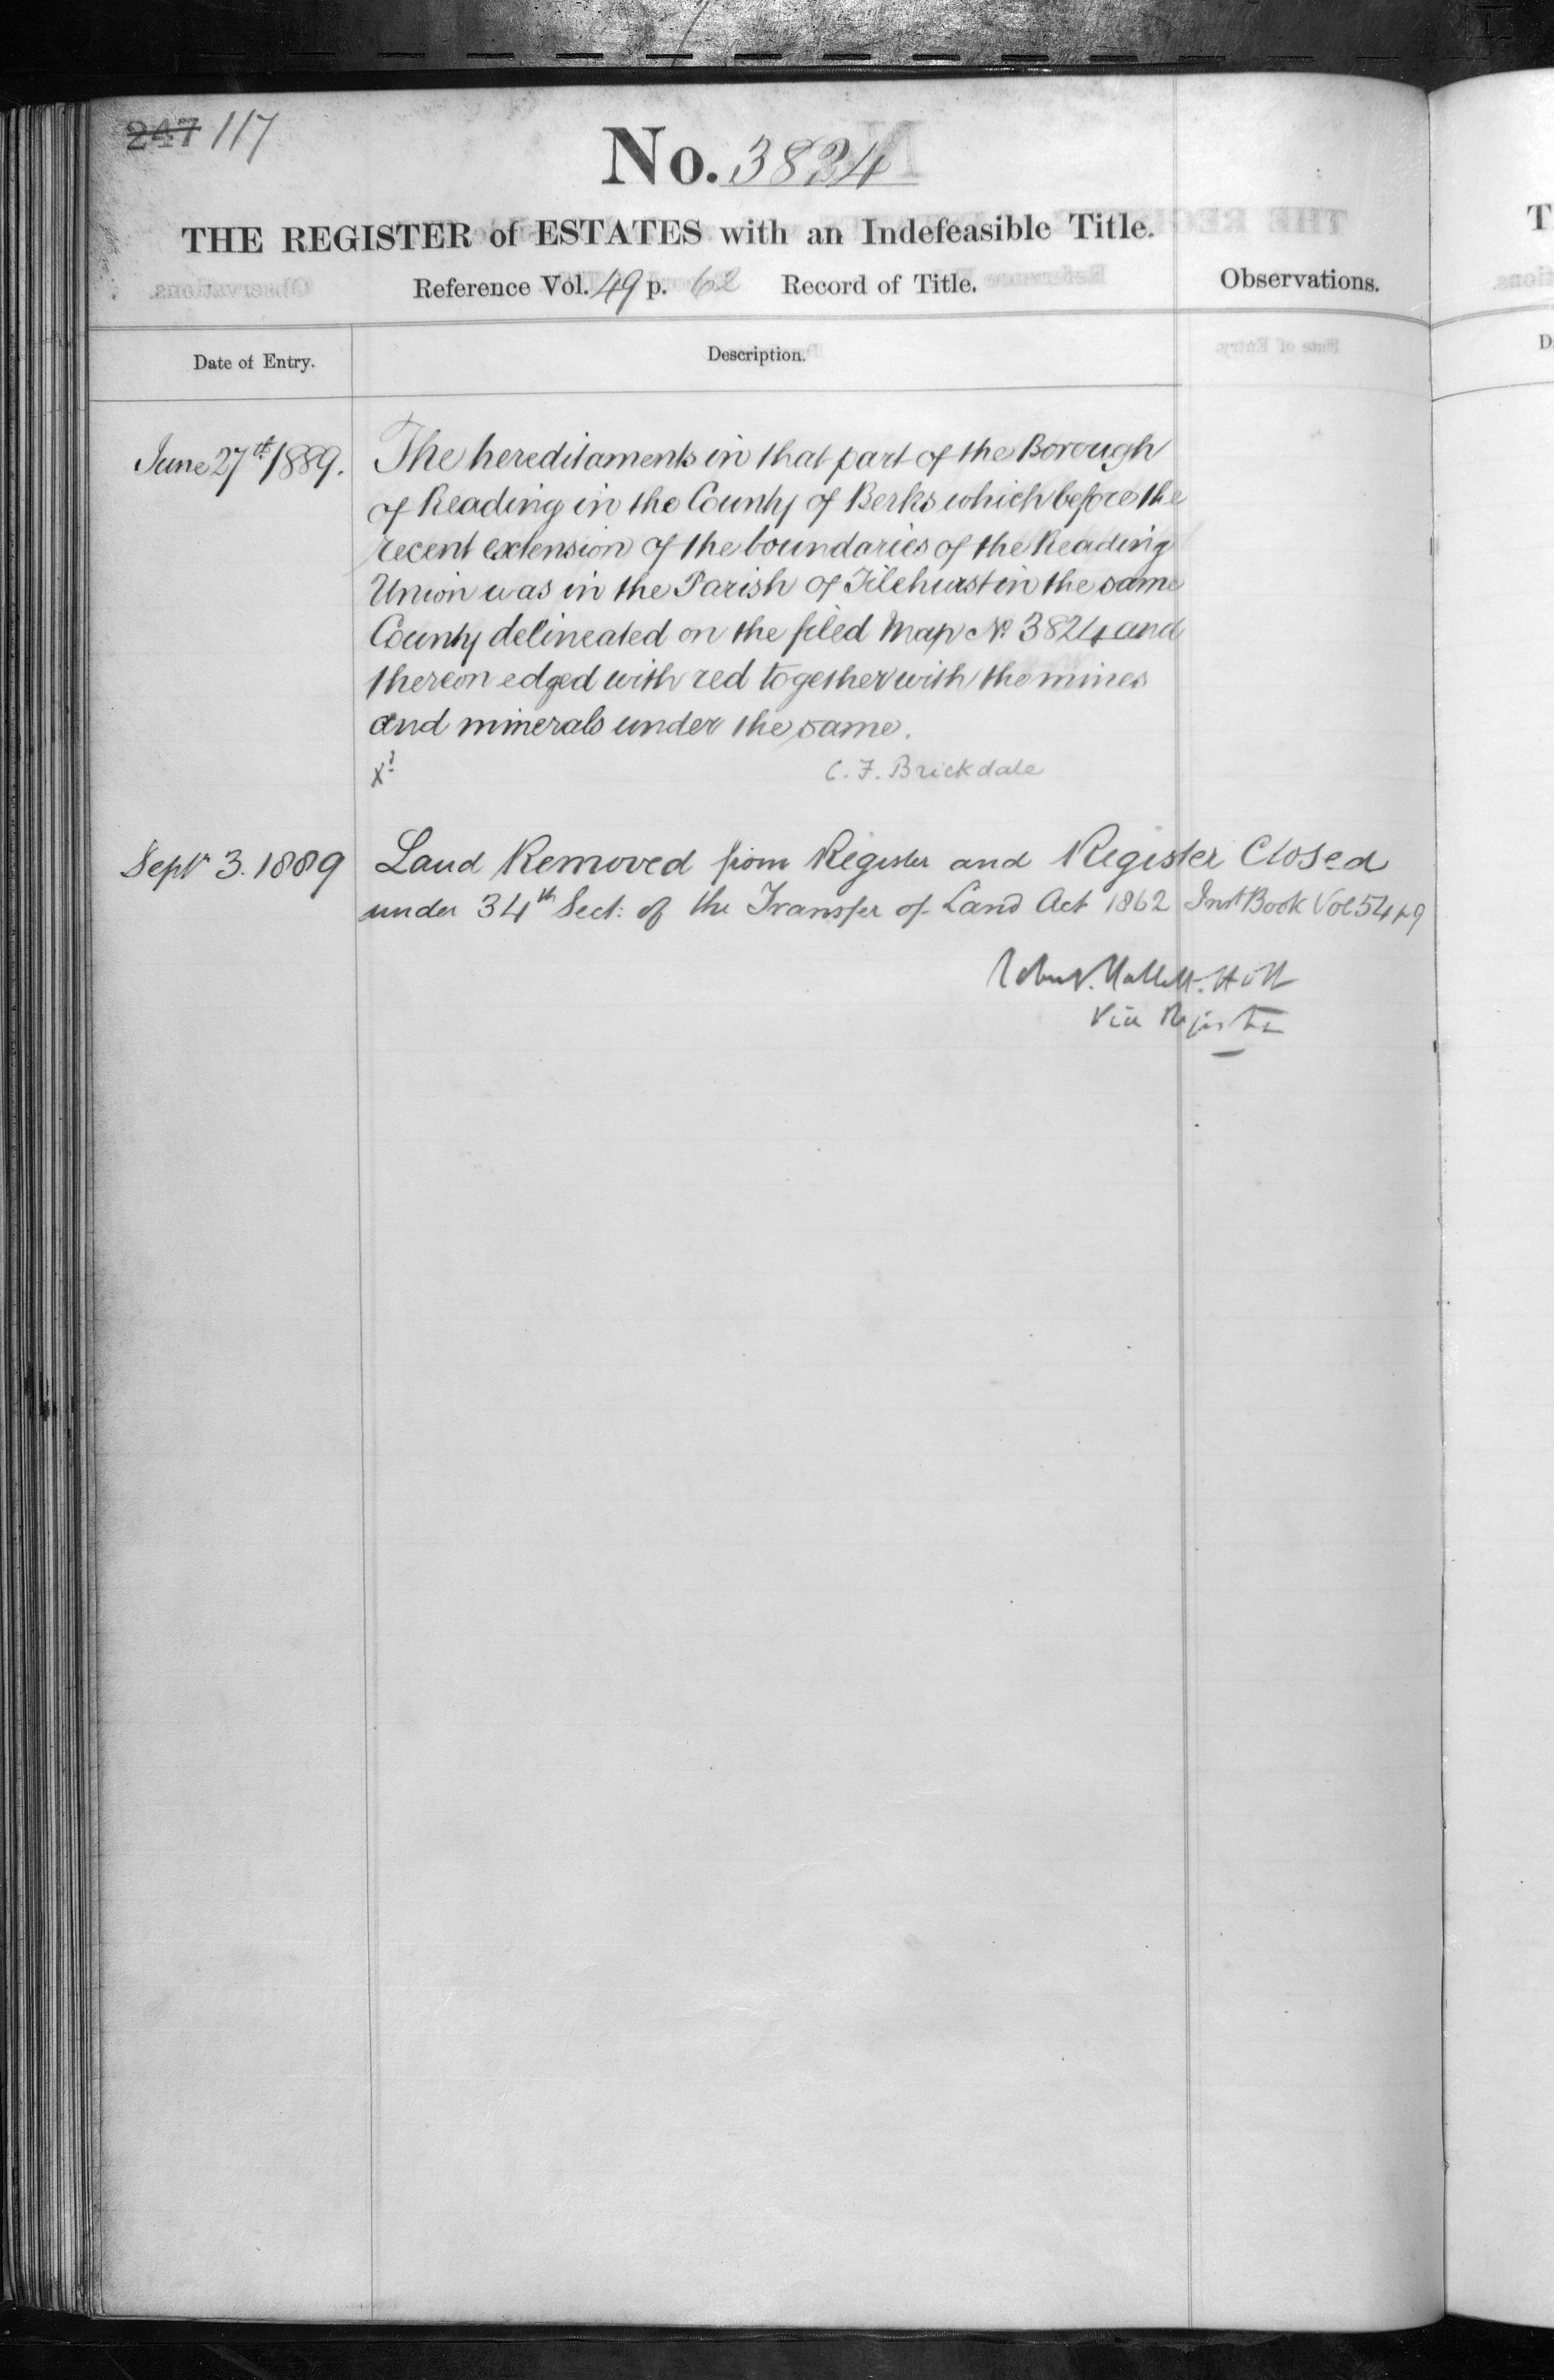 247 117
No. 3824
THE REGISTER of ESTATES with an Indefeasible Title.
Reference Vol. 49 p. 62 Record of Title.
Observations.
Date of Entry.
Description.
June 27th 1889.
The hereditaments in that part of the Borough
of Reading in the County of Berks which before the
recent extension of the boundaries of the Reading
Union was in the Parish of Tilehurst in the same
County delineated on the filed Map No. 3824 and
thereon edged with red together with the mines
and minerals under the same.
C. F. Brickdale
Septr 3. 1889
Land Removed from Register and Register Closed
under 34th Sect: of the Transfer of Land Act 1862 Inst Book Vol 54
Holt